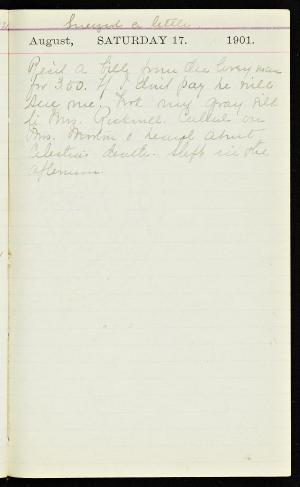 Sneezed a little.
August, SATURDAY 17. 1901.
Rec'd a bill from the livery man
for 3.00. If I don't pay he will
sue me. Wore my gray silk
to Mrs. Rockwell. Called on
Mrs. Morton & heard about
Celestia's death. Slept in the
afternoon.